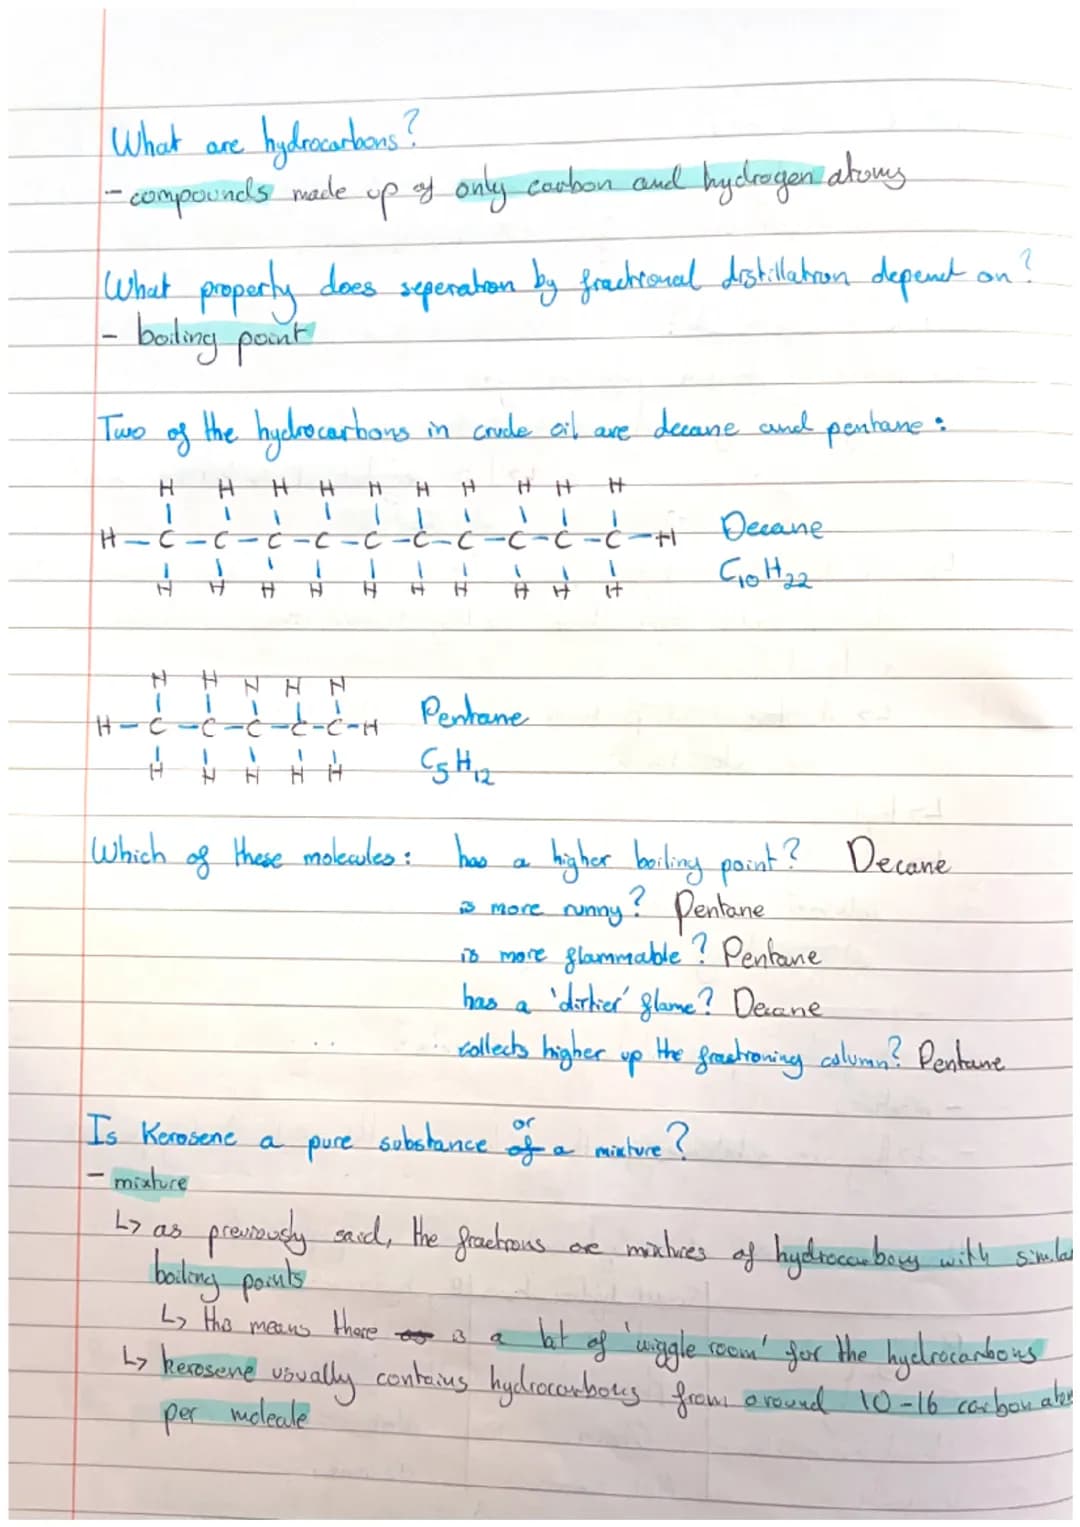 What are hydrocarbons?
- compounds made up of only carbon and hydrogen atoms
What property does seperation by fractional distillation depend on?
- boiling point
Two of the hydrocarbons in crude oil are decane and pentane :
H H H H H H H H H H
H-C-C-C-C-C-C-C-C-C-C-H Decane
H H H H H H H H H H C10H22
H H H H H
H-C-C-C-C-C-H Pentane
H H H H H C5H12
Which of these molecules : has a higher boiling point? Decane
is more runny? Pentane
is more flammable? Pentane
has a 'dirtier' flame? Decane
collects higher up the fractioning column? Pentane
Is Kerosene a pure substance or a mixture?
- mixture
↳ as previously said, the fractions are mixtures of hydrocarbons with similar
boiling points
↳ this means there is a bit of 'wiggle room' for the hydrocarbons
↳ kerosene usually contains hydrocarbons from around 10-16 carbon atom
per molecule